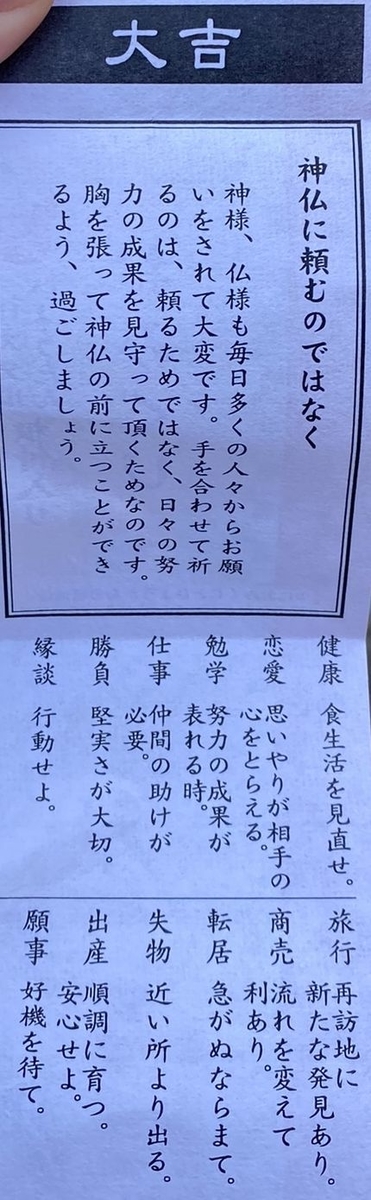 大吉
神仏に頼むのではなく
神様、仏様も毎日多くの人々からお願
いをされて大変です。手を合わせて祈
るのは、頼るためではなく、日々の努
力の成果を見守って頂くためなのです。
胸を張って神仏の前に立つことができ
るよう、過ごしましょう。
健康 食生活を見直せ。
恋愛 思いやりが相手の
心をとらえる。
勉学 努力の成果が
表れる時。
仕事 仲間の助けが
必要。
勝負 堅実さが大切。
縁談 行動せよ。
旅行 再訪地に
新たな発見あり。
商売 流れを変えて
利あり。
転居 急がぬならまて。
失物 近い所より出る。
出産 順調に育つ。
安心せよ。
願事 好機を待て。